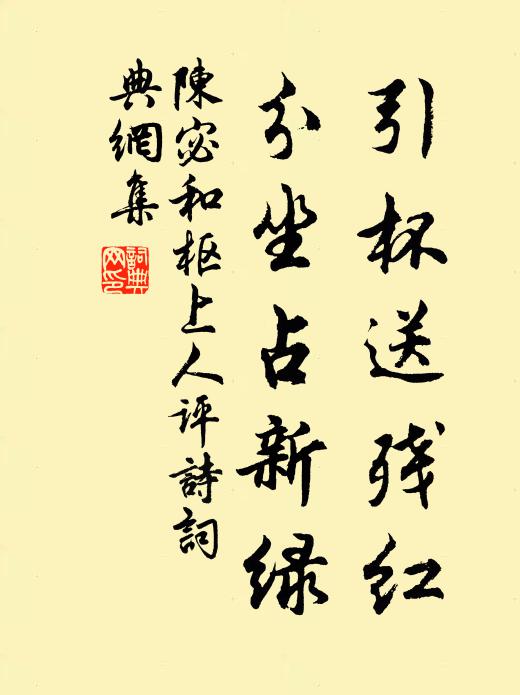 引杯送残红
分坐占新绿
陳宓和枢上人评詩詞
典網集
詞典网印